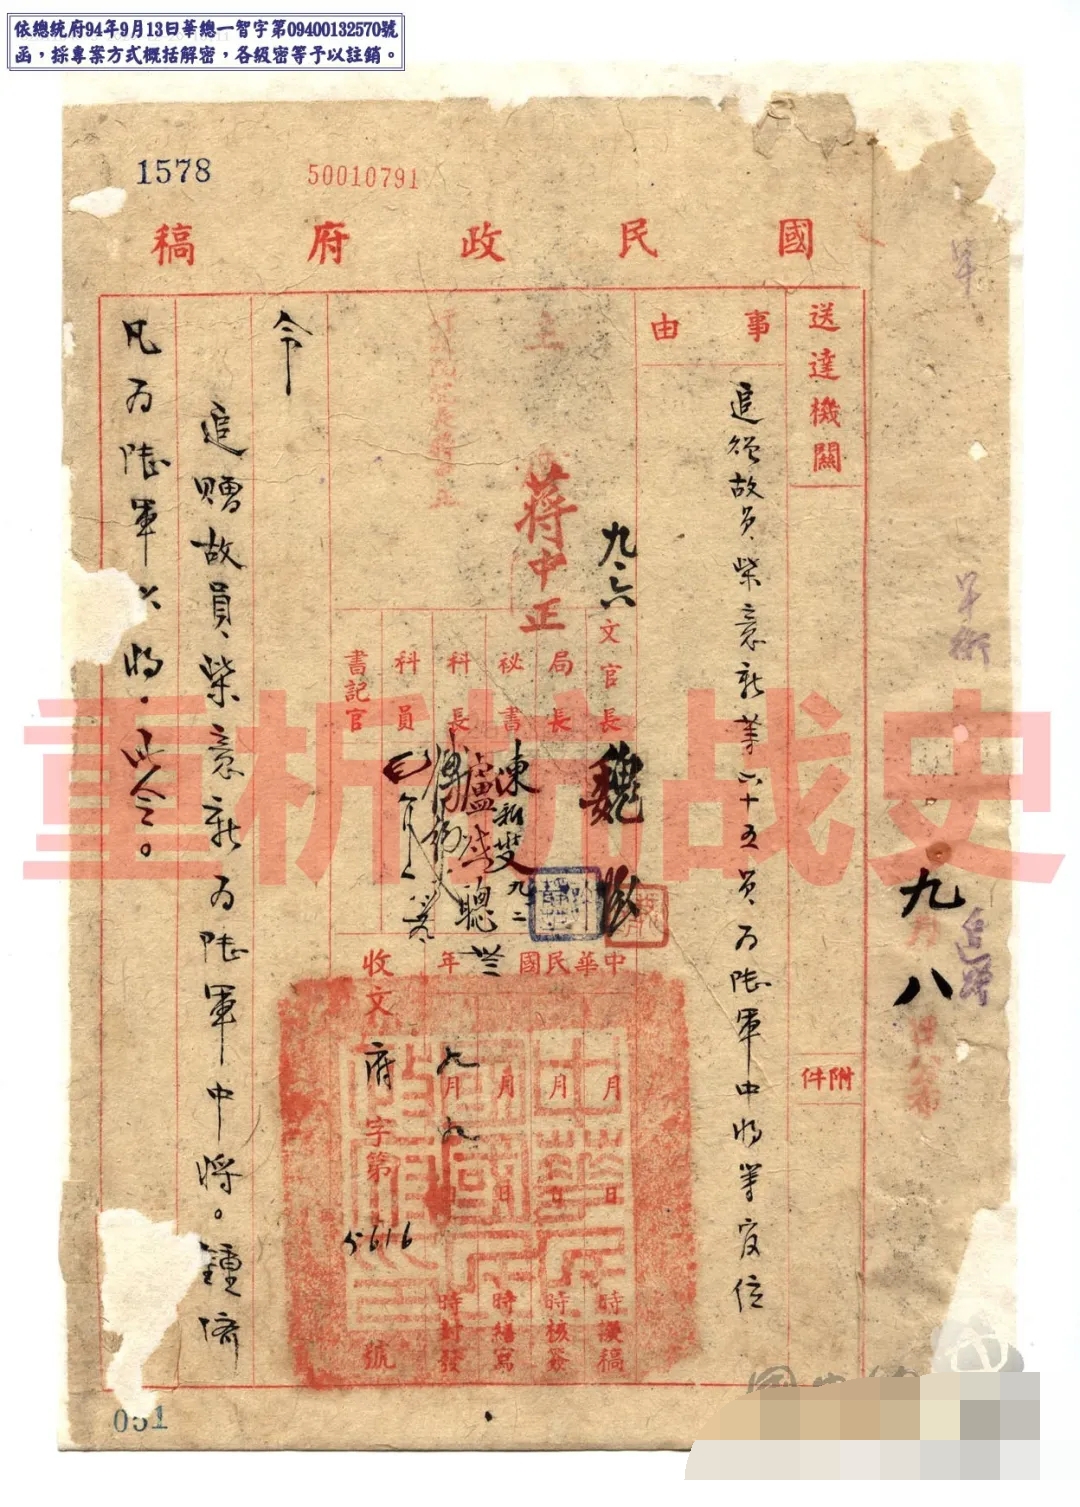 依總統府94年9月13日華總一智字第09400132570號
函，採專案方式概括解密，各級密等予以註銷。
1578
50010791
國民政府稿
送達機關
事由
追贈故員柴意新等六十五員為陸軍中將等官位
附件
九八
追贈
蔣中正
九、六
文官長
魏
局長
秘書
陳
九、二
科長
科員
書記官
中華民國卅年
月日時擬稿
月日時核簽
月日時繕寫
九月九日時封發
收文府字第5616號
令
追贈故員柴意新為陸軍中將。鍾
凡為陸軍少將。此令。
051
重析抗战史